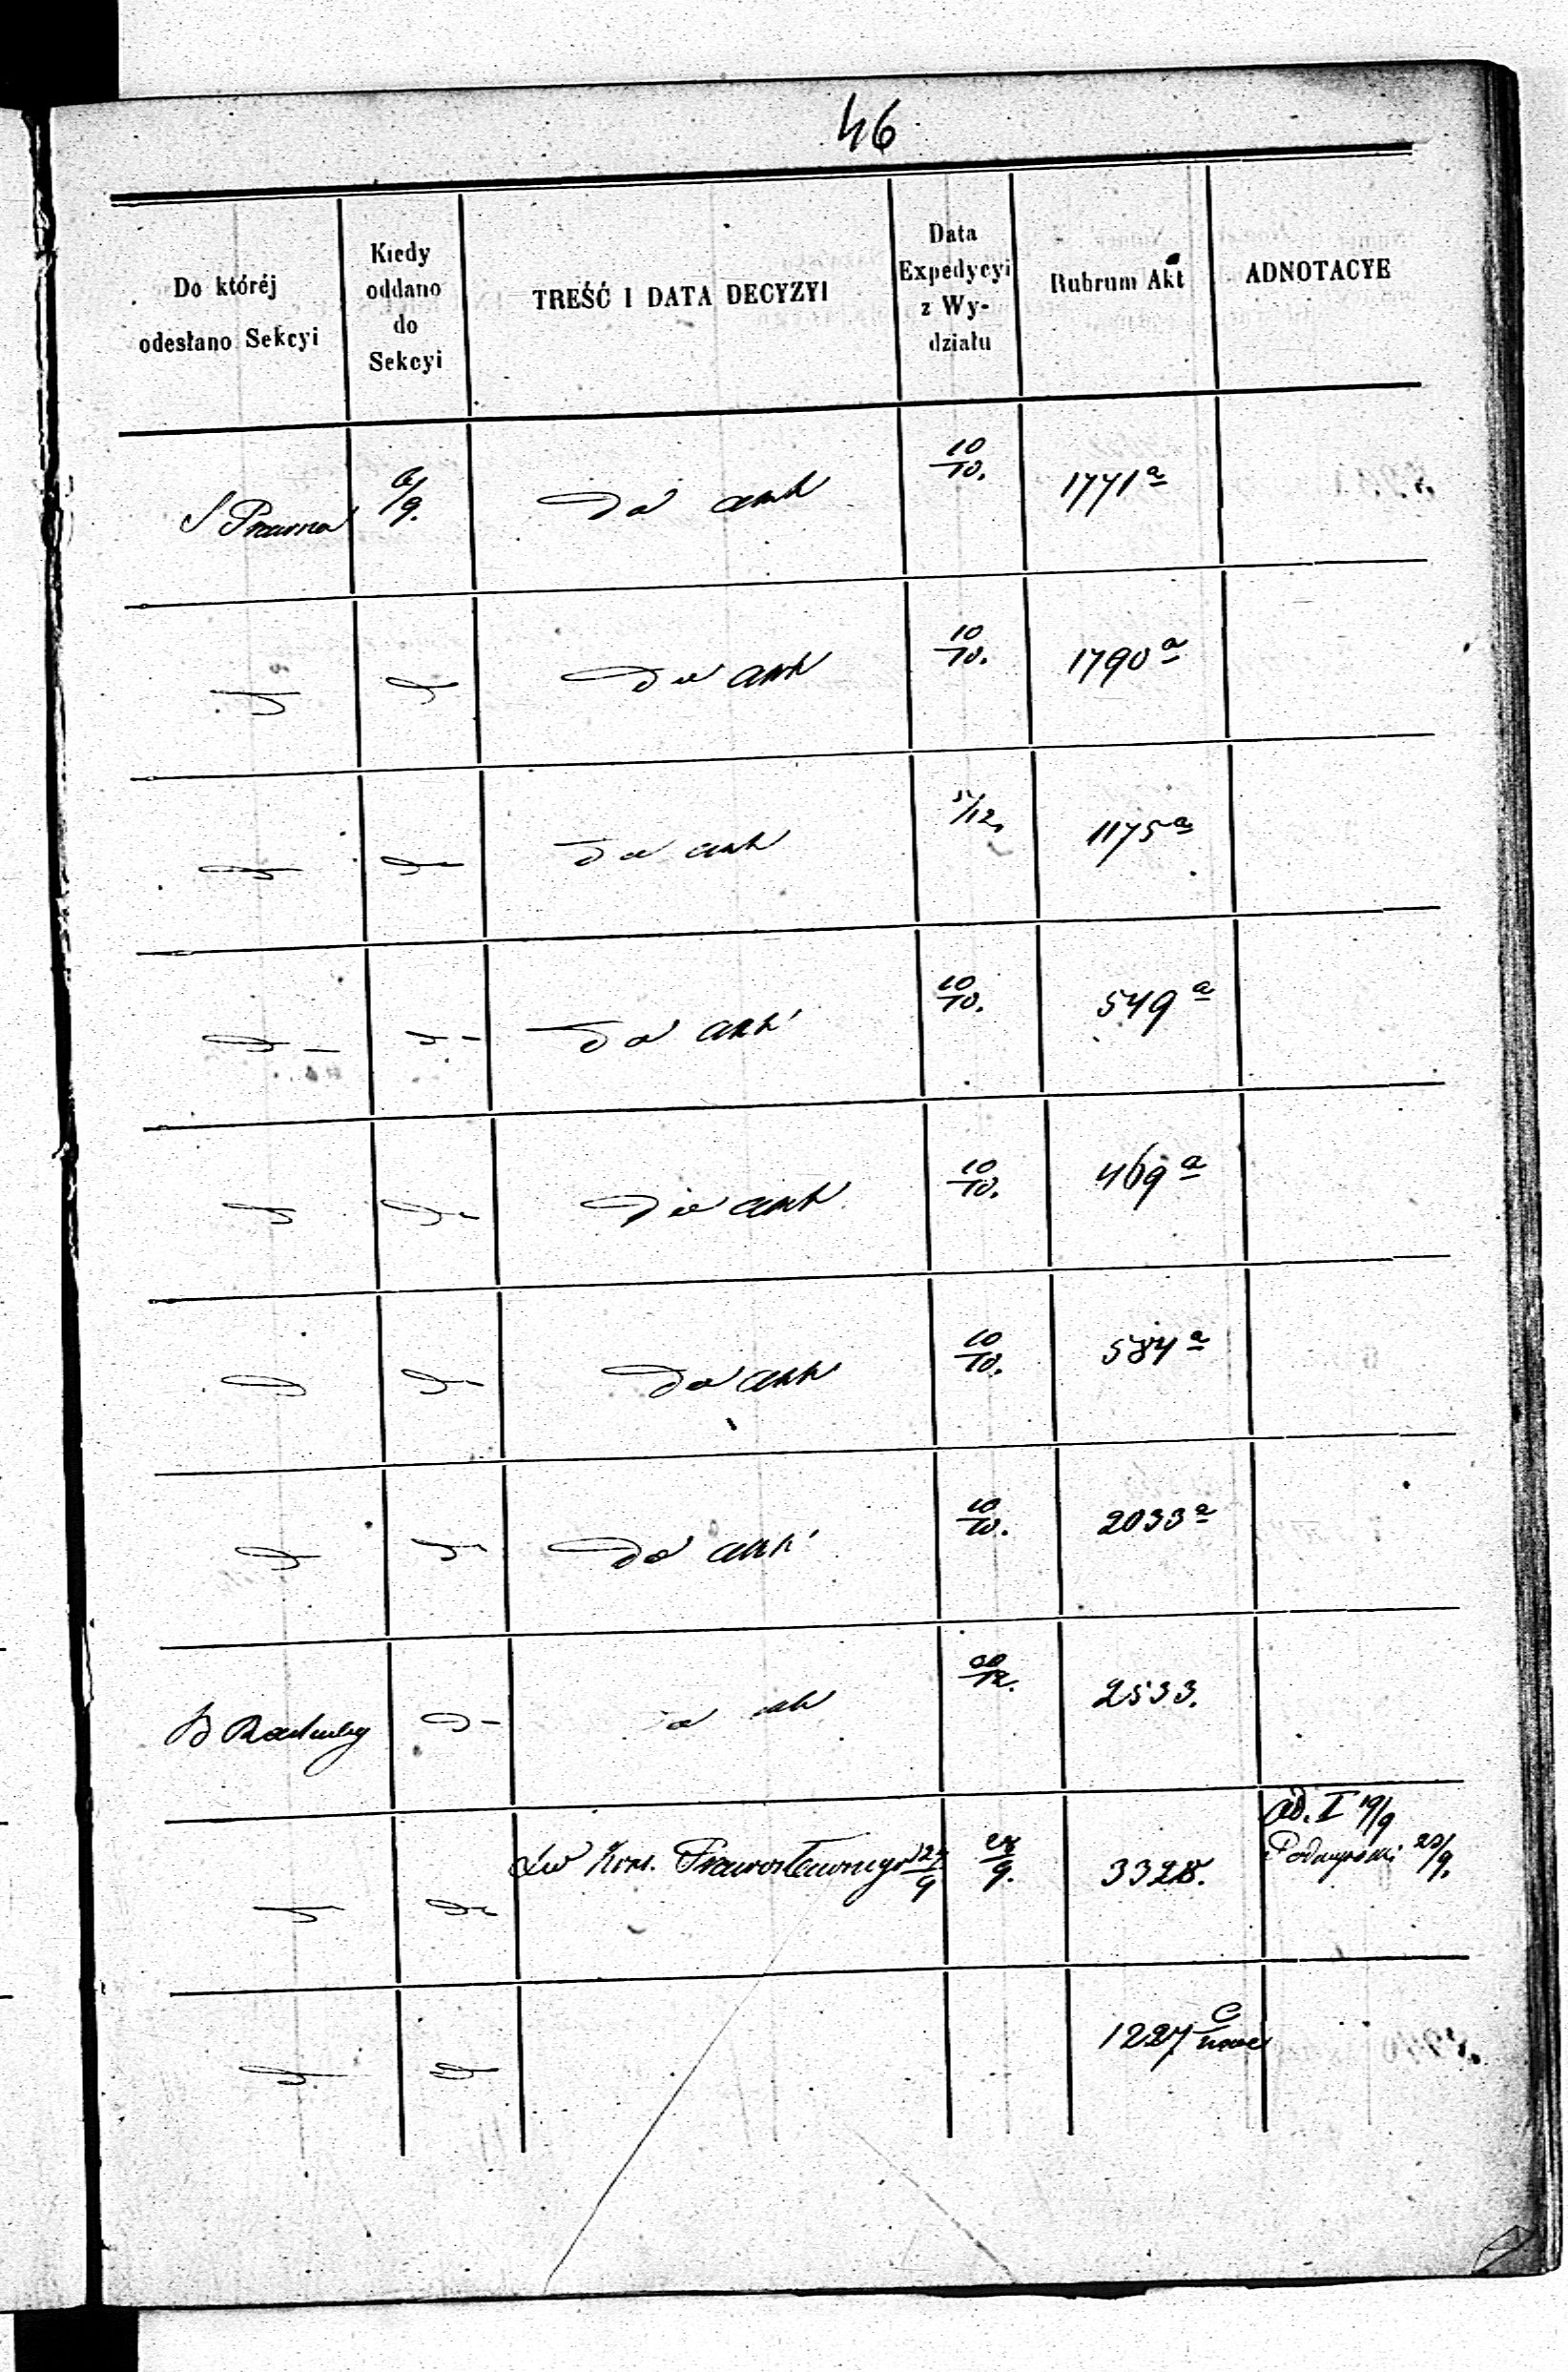 46
Do któréj
odesłano Sekcyi
Kiedy
oddano
do
Sekcyi
TREŚĆ I DATA DECYZYI
Data
Expedycyi
z Wy-
działu
Rubrum Akt
ADNOTACYE
S Prawna 6/9. Do akt 10/10. 1771 a
D D Do akt 10/10. 1790 a
D D Do akt 5/12. 1175 a
D D Do akt 10/10. 549 a
D D Do akt 10/10. 469 a
D D Do akt 10/10. 584 a
D D Do akt 10/10. 2033 a
D Do akt 2533.
Prawosławnego 24/9 28/9. 3328. ad. I 19/9
D D 23/9.
D D 1227 C